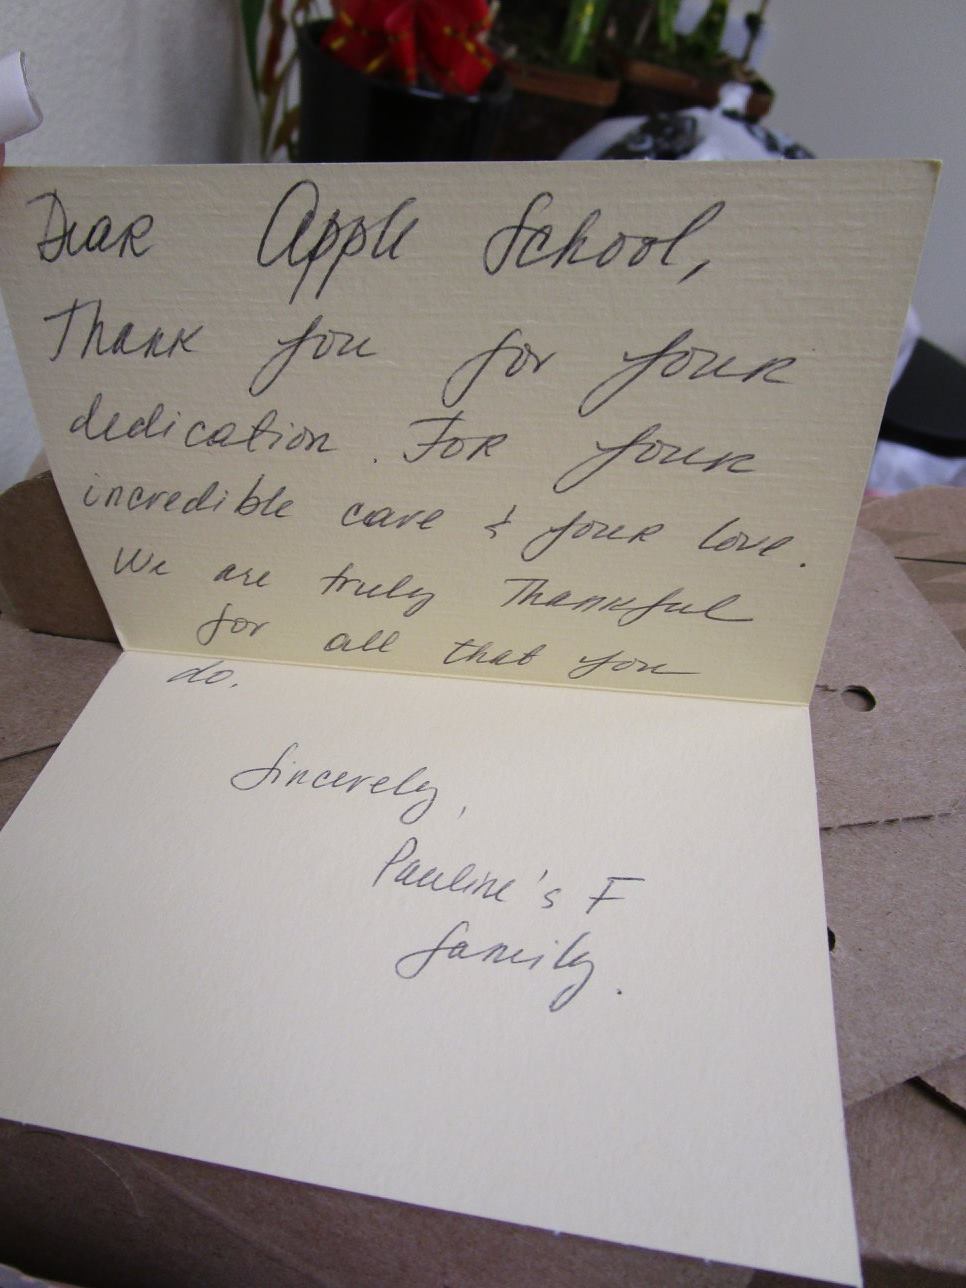 Dear Apple School,
Thank you for your
dedication. For your
incredible care & your love.
We are truly Thankful
for all that you
do.
Sincerely,
Pauline's F
family.